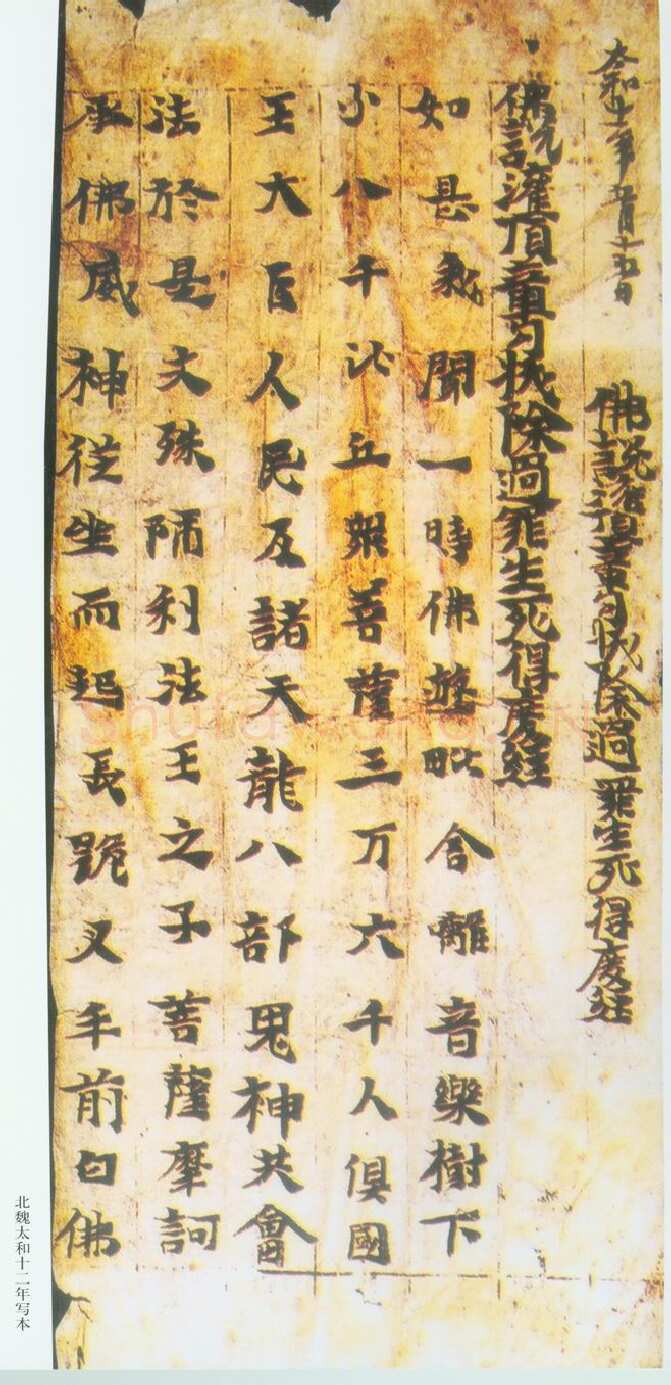 太和十一年五月十五日
佛說灌頂章句拔除過罪生死得度經
佛說灌頂章句拔除過罪生死得度經
如是我聞一時佛遊毗舍離音樂樹下
小八千比丘眾菩薩三万六千人俱國
王大臣人民及諸天龍八部鬼神共會
法於是文殊師利法王之子菩薩摩訶
承佛威神從坐而起長跪叉手前白佛
北魏太和十二年写本
shufawang.CN